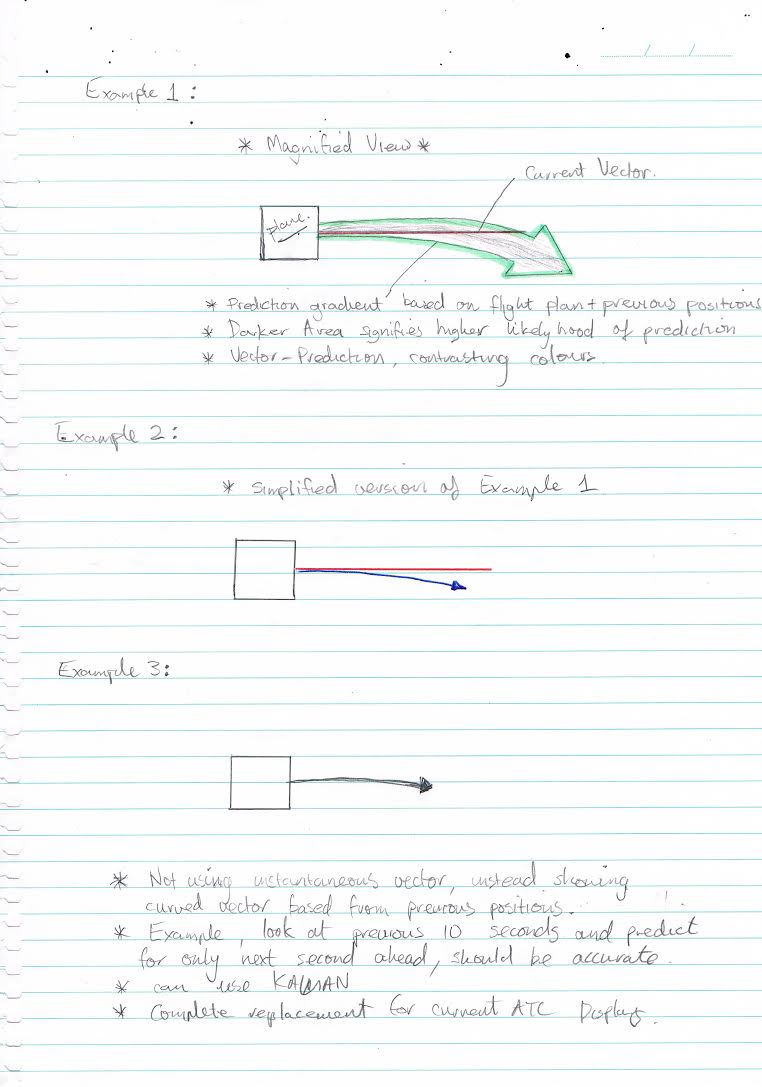 Example 1 :
* Magnified View *
Current Vector.
plane.
* Prediction gradient based on flight plan + previous positions
* Darker Area signifies higher likelyhood of prediction
* Vector - Prediction, contrasting colours.
Example 2 :
* Simplified version of Example 1
Example 3 :
* Not using instantaneous vector, instead showing
curved vector based from previous positions.
* Example, look at previous 10 seconds and predict
for only next second ahead, should be accurate.
* can use KALMAN
* Complete replacement for current ATC Displays.